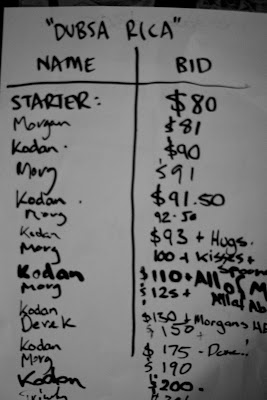 "DUBSA RICA"
NAME BID
STARTER: $80
Morgan $81
Kodan. $90
Morg $91
Kodan. $91.50
Morg 92.50
Kodan $93 + Hugs.
Morg 100 + kisses +
Kodan $110 + All of M
Morg $125 +
Kodan $130 + Morgans
Derek $150 +
Kodan $175 - Done!
Morg $190
Kodan $200.